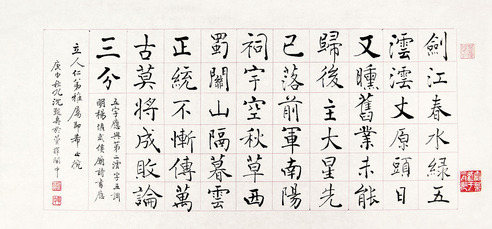 劍江春水綠五
澐澐丈原頭日
又曛舊業未能
歸後主大星先
已落前軍南陽
祠宇空秋草西
蜀關山隔暮雲
正統不慚傳萬
古莫將成敗論
三分
五字應與第二澐字互調
明楊慎武侯廟詩書應
立人仁弟雅屬即希
庚申秋